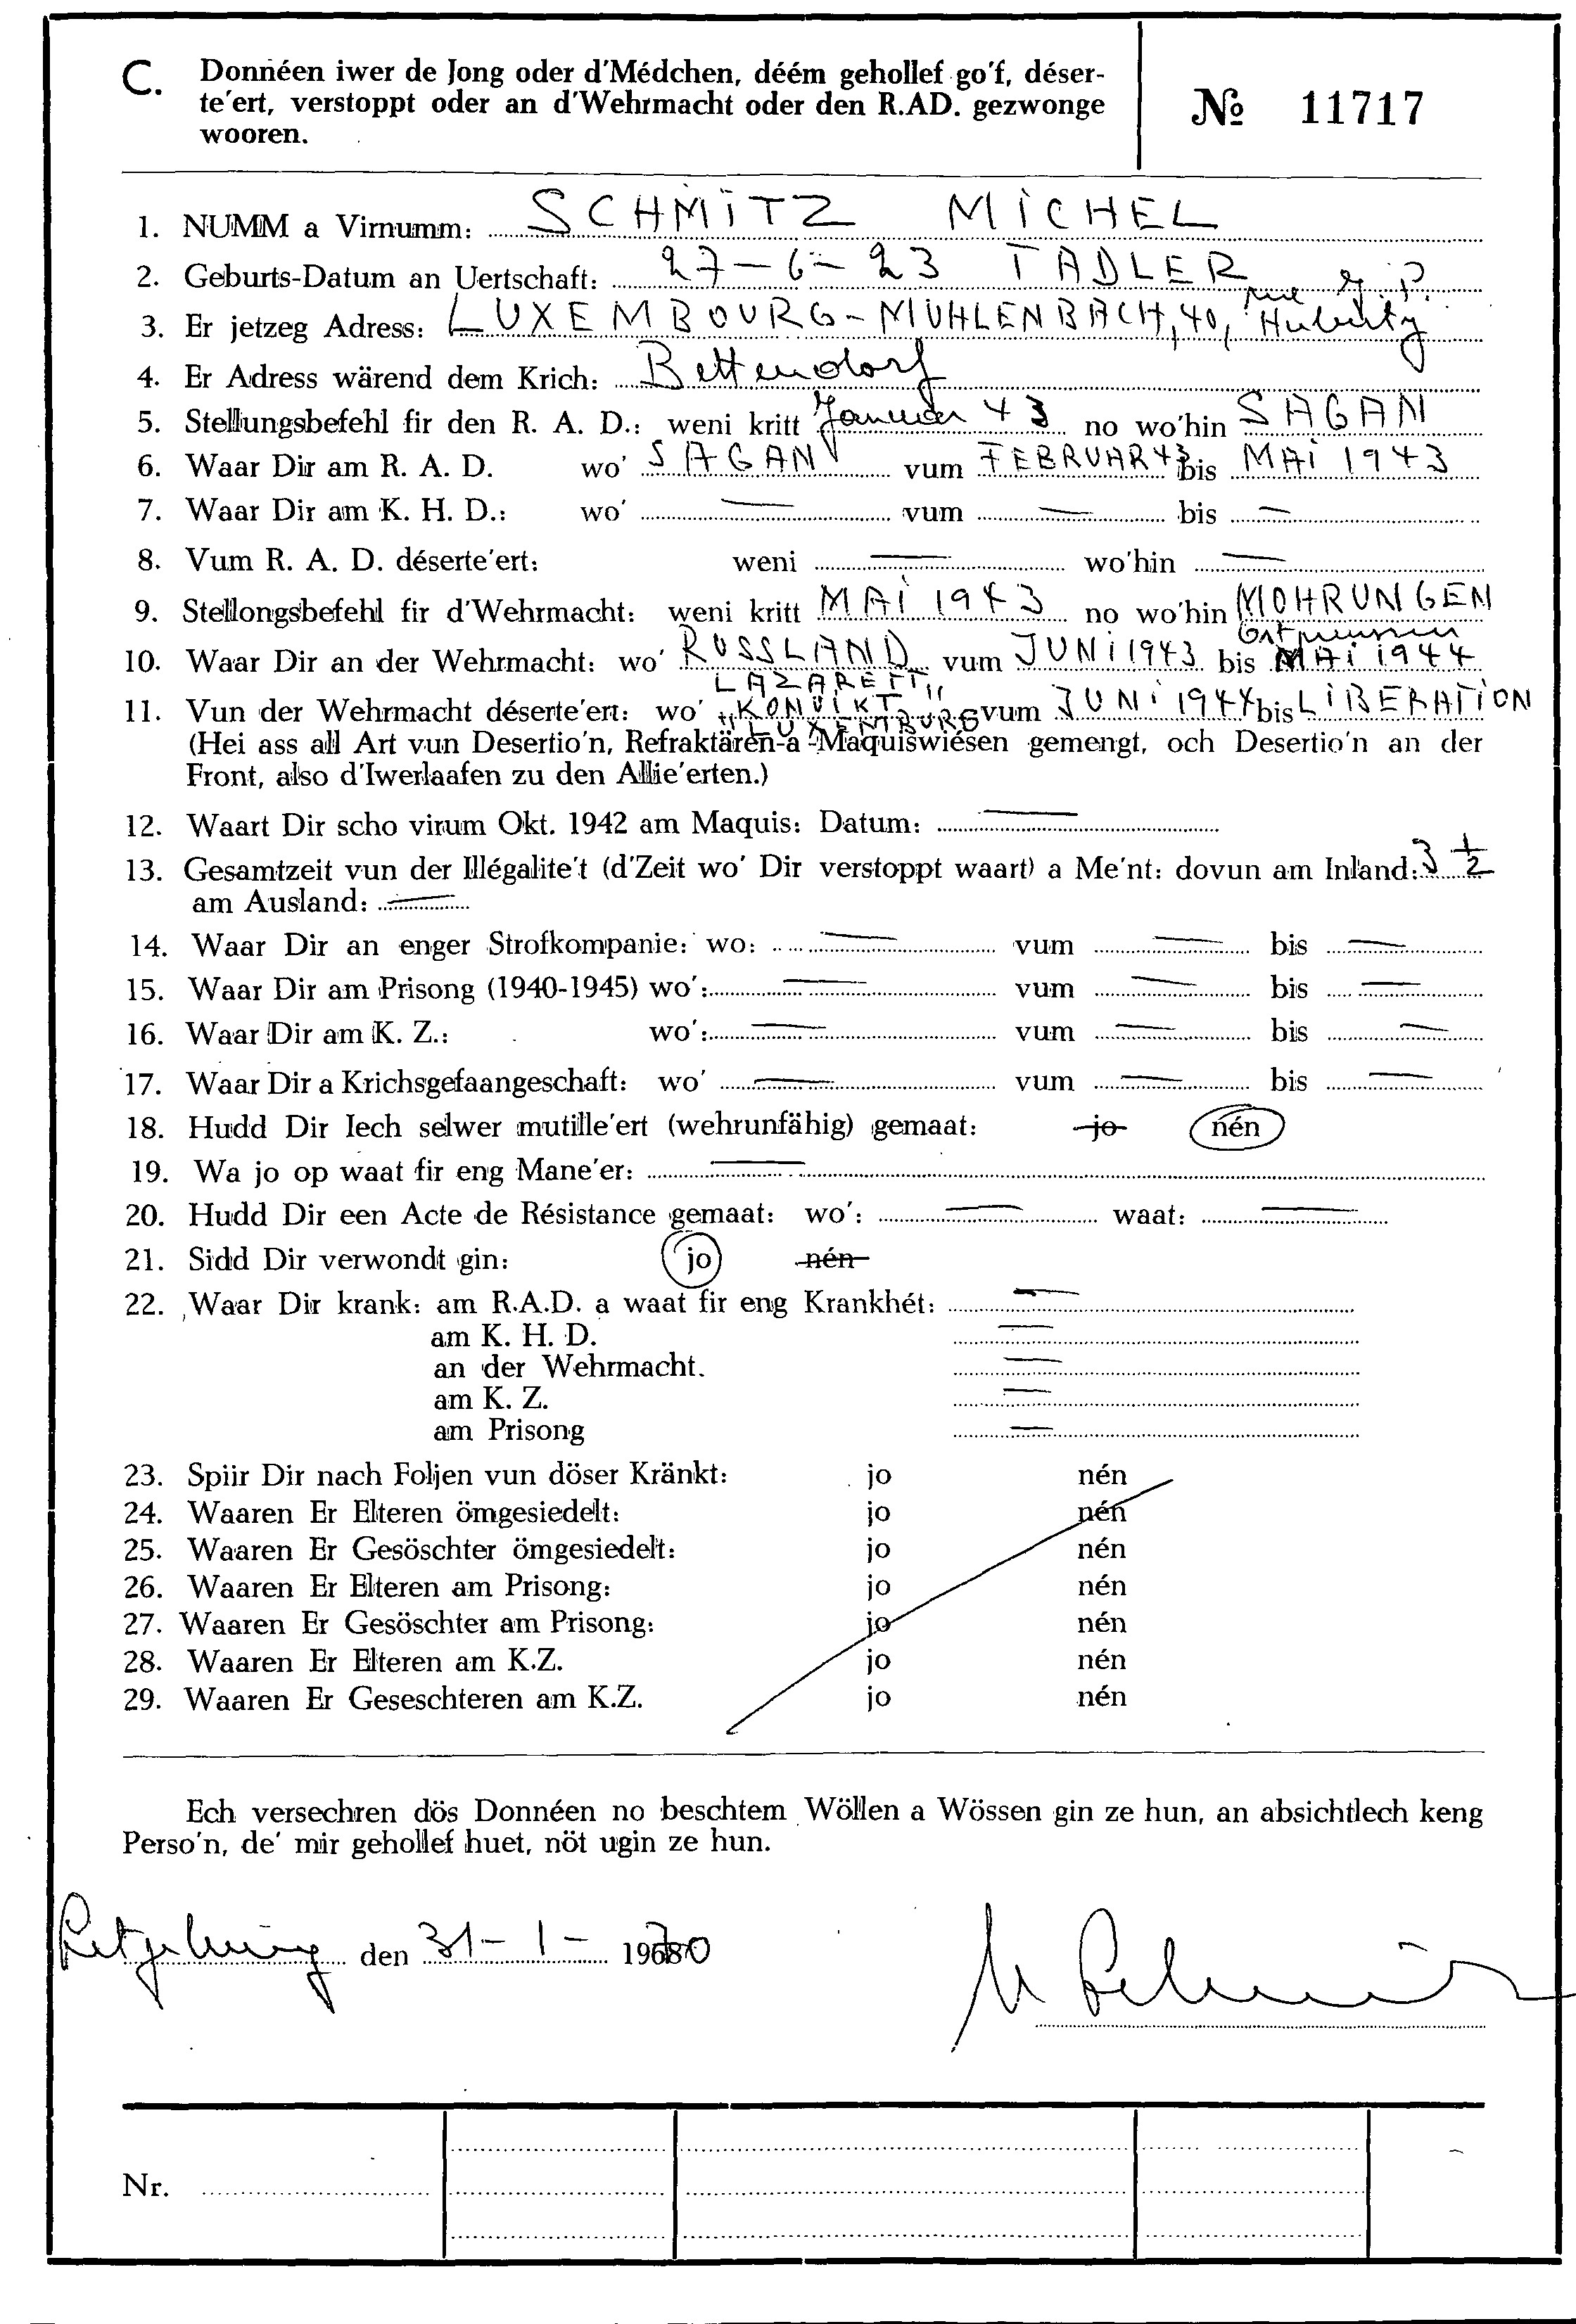 C. Donnéen iwer de Jong oder d'Médchen, déém gehollef go'f, déser-
te'ert, verstoppt oder an d'Wehrmacht oder den R.AD. gezwonge
wooren.
№ 11717
1. NUMM a Virnumm: SCHMITZ MICHEL
2. Geburts-Datum an Uertschaft: 27-6-23 TADLER
3. Er jetzeg Adress: LUXEMBOURG-MUHLENBACH, 40, rue J. P. Huberty
4. Er Adress wärend dem Krich: Bettendorf
5. Stellungsbefehl fir den R. A. D.: weni kritt Januar 43 no wo'hin SAGAN
6. Waar Dir am R. A. D. wo' SAGAN vum FEBRUAR 43 bis MAI 1943
7. Waar Dir am K. H. D.: wo' — vum — bis —
8. Vum R. A. D. déserte'ert: weni — wo'hin —
9. Stellongsbefehl fir d'Wehrmacht: weni kritt MAI 1943 no wo'hin MOHRUNGEN
Ostpreussen
10. Waar Dir an der Wehrmacht: wo' RUSSLAND vum JUNI 1943 bis MAI 1944
LAZARETT
11. Vun der Wehrmacht déserte'ert: wo' "KONVIKT" vum JUNI 1944 bis LIBERATION
LUXEMBURG
(Hei ass all Art vun Desertio'n, Refraktären-a -Maquiswiésen gemengt, och Desertio'n an der
Front, also d'Iwerlaafen zu den Allie'erten.)
12. Waart Dir scho virum Okt. 1942 am Maquis: Datum: —
13. Gesamtzeit vun der Illégalite't (d'Zeit wo' Dir verstoppt waart) a Me'nt: dovun am Inland: 3 1/2
am Ausland: —
14. Waar Dir an enger Strofkompanie: wo: — vum — bis —
15. Waar Dir am Prisong (1940-1945) wo': — vum — bis —
16. Waar Dir am K. Z.: wo': — vum — bis —
17. Waar Dir a Krichsgefaangeschaft: wo' — vum — bis —
18. Hudd Dir Iech selwer mutille'ert (wehrunfähig) gemaat: jo nén
19. Wa jo op waat fir eng Mane'er: —
20. Hudd Dir een Acte de Résistance gemaat: wo': — waat: —
21. Sidd Dir verwondt gin: jo nén
22. Waar Dir krank: am R.A.D. a waat fir eng Krankhét: —
am K. H. D. —
an der Wehrmacht. —
am K. Z. —
am Prisong —
23. Spiir Dir nach Foljen vun döser Kränkt: jo nén
24. Waaren Er Elteren ömgesiedelt: jo nén
25. Waaren Er Gesöschter ömgesiedelt: jo nén
26. Waaren Er Elteren am Prisong: jo nén
27. Waaren Er Gesöschter am Prisong: jo nén
28. Waaren Er Elteren am K.Z. jo nén
29. Waaren Er Geseschteren am K.Z. jo nén
Ech versechren dös Donnéen no beschtem Wöllen a Wössen gin ze hun, an absichtlech keng
Perso'n, de' mir gehollef huet, nöt ugin ze hun.
Letzeburg den 31-1- 1970
M Schmitz
Nr.